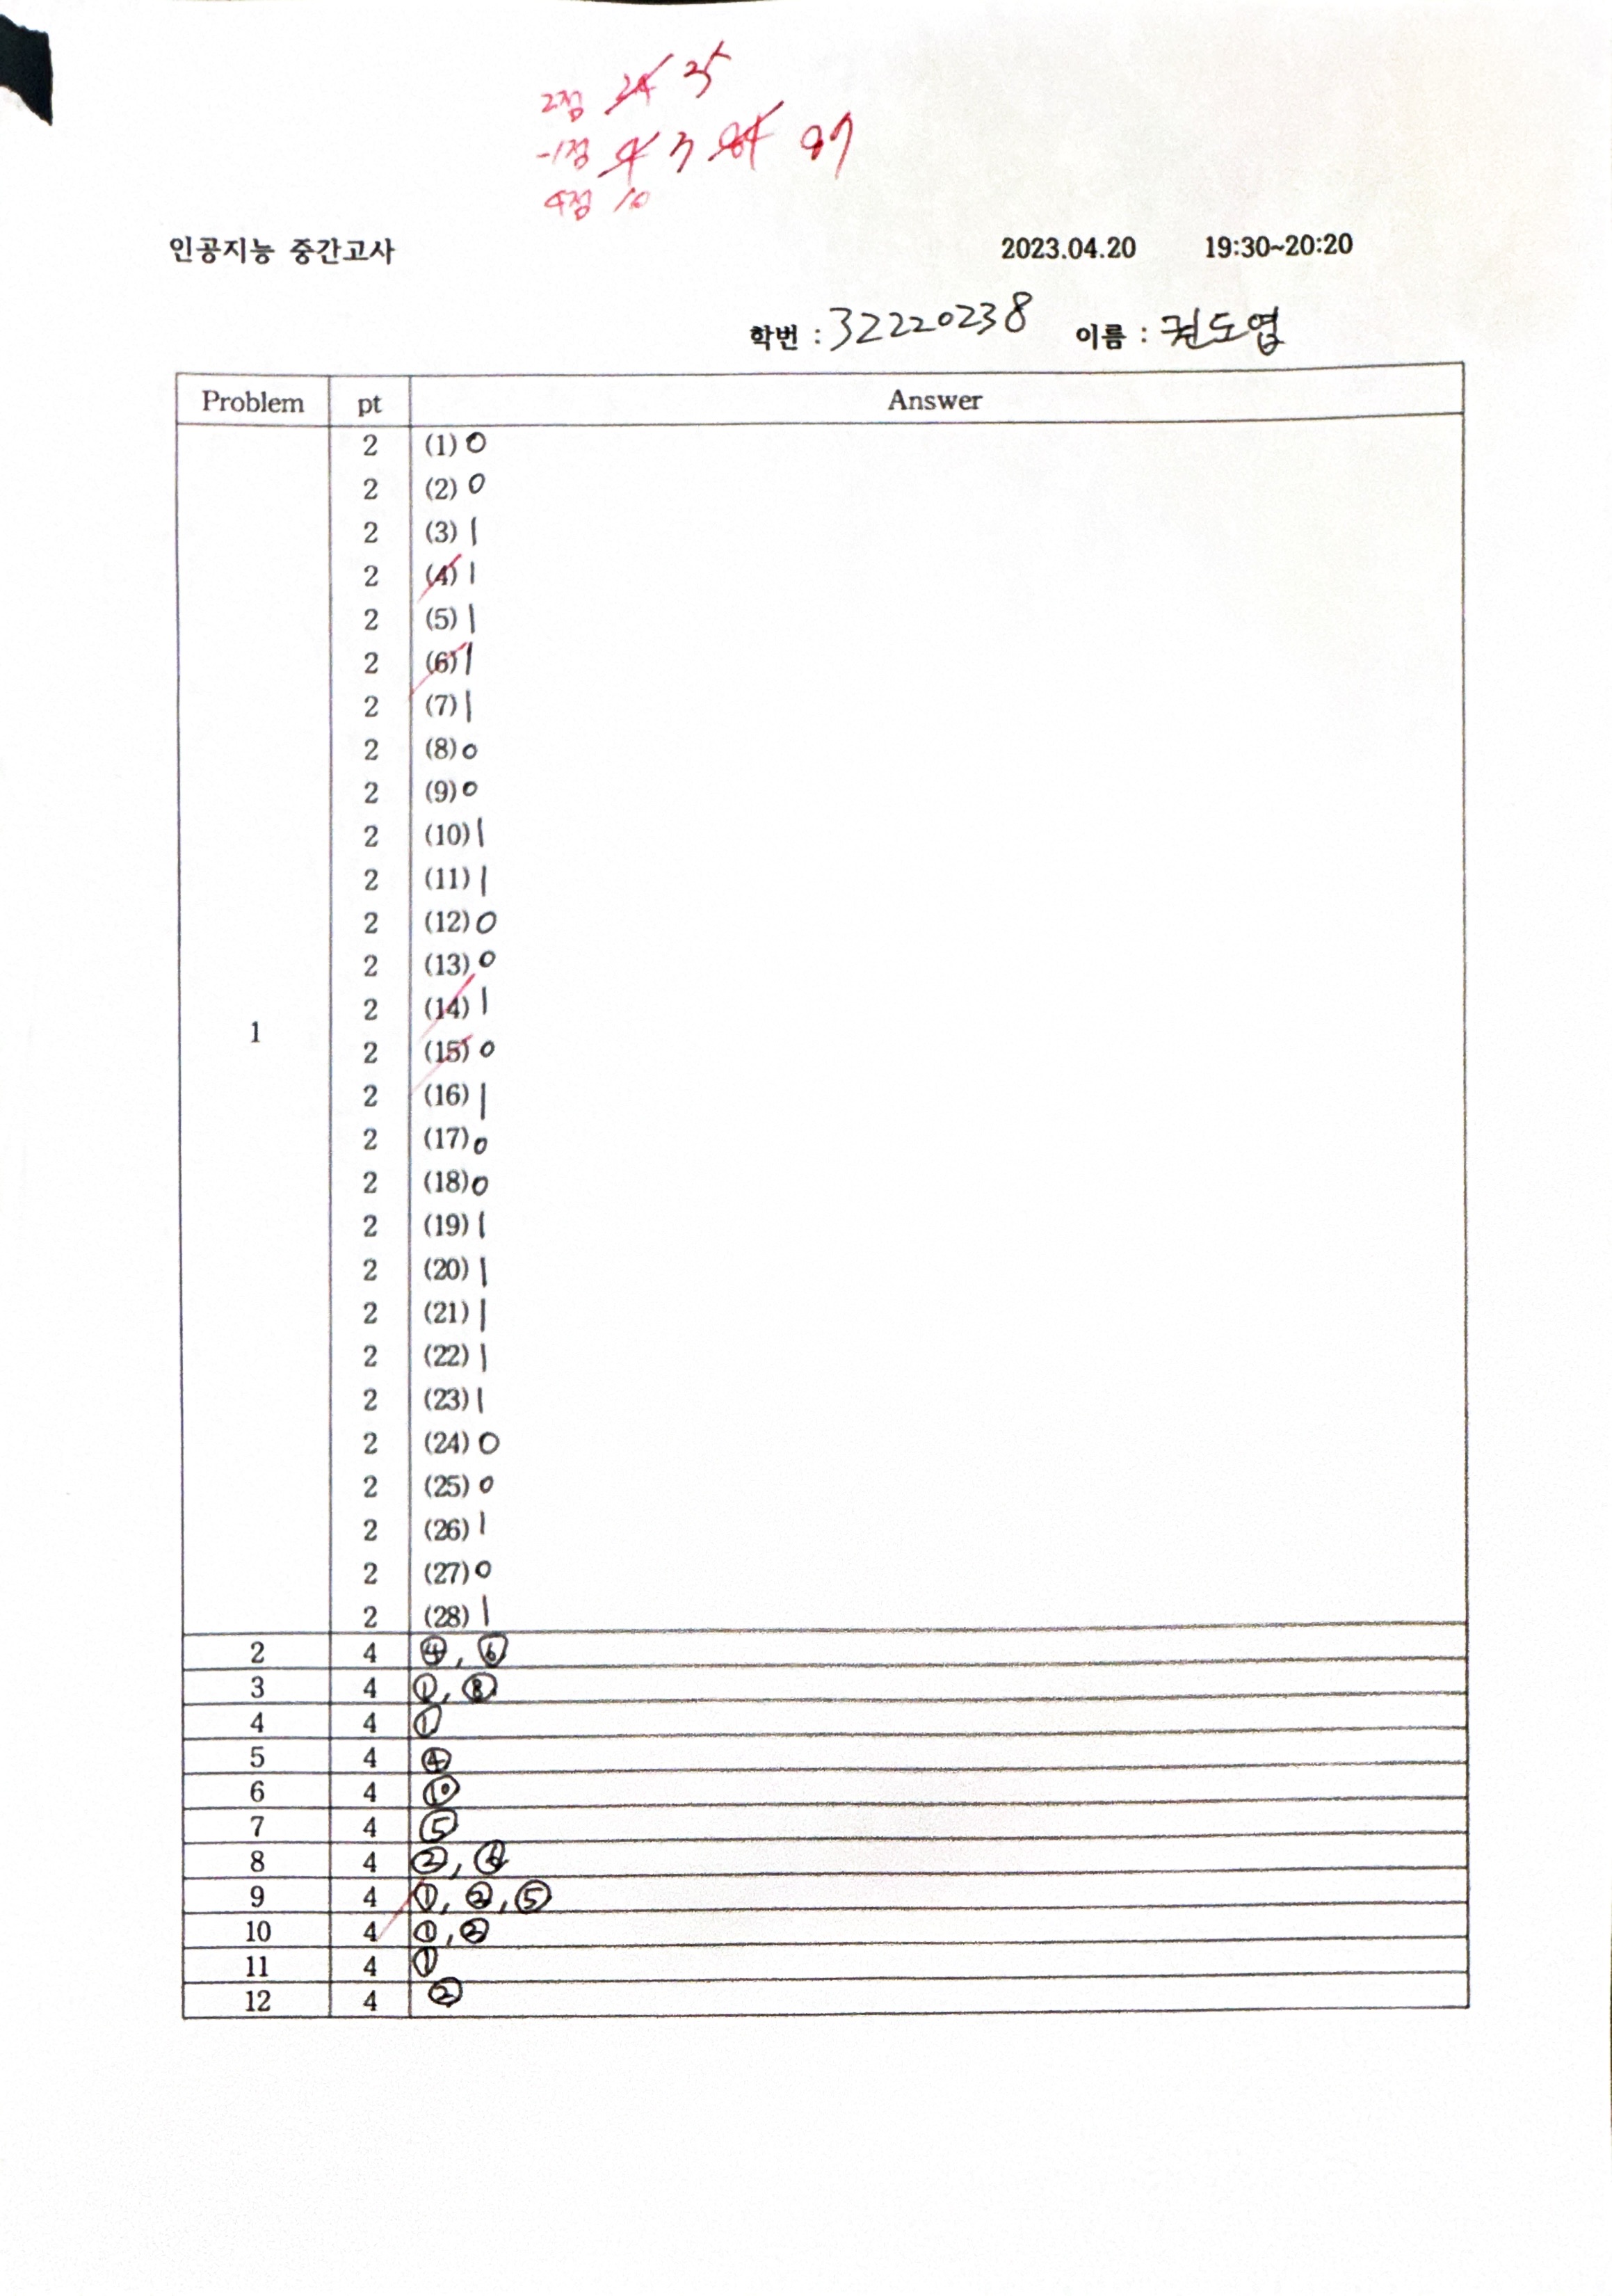 2점 24 25
-1점 4 3 84 87
4점 10
인공지능 중간고사 2023.04.20 19:30~20:20
학번 : 32220238 이름 : 권도엽
Problem pt Answer
2 (1) 0
2 (2) 0
2 (3) 1
2 (4) 1
2 (5) 1
2 (6) 1
2 (7) 1
2 (8) 0
2 (9) 0
2 (10) 1
2 (11) 1
2 (12) 0
2 (13) 0
2 (14) 1
1
2 (15) 0
2 (16) 1
2 (17) 0
2 (18) 0
2 (19) 1
2 (20) 1
2 (21) 1
2 (22) 1
2 (23) 1
2 (24) 0
2 (25) 0
2 (26) 1
2 (27) 0
2 (28) 1
2 4 ④, ⑥
3 4 ①, ⑧
4 4 ①
5 4 ④
6 4 ⑩
7 4 ⑤
8 4 ②, ④
9 4 ①, ②, ⑤
10 4 ①, ②
11 4 ①
12 4 ②